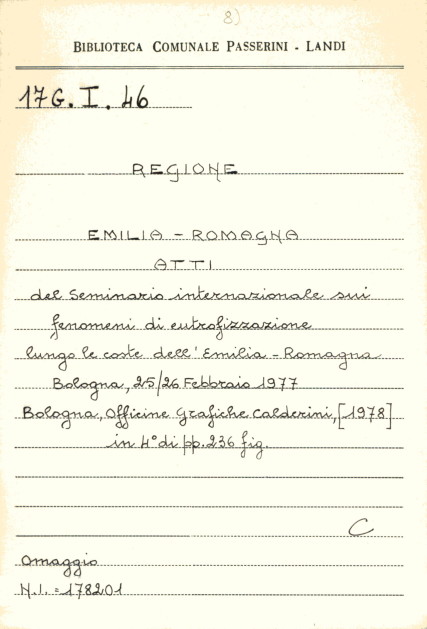 8)
BIBLIOTECA COMUNALE PASSERINI - LANDI
17G. I. 46
REGIONE
EMILIA - ROMAGNA
ATTI
del Seminario internazionale sui
fenomeni di eutrofizzazione
lungo le coste dell'Emilia - Romagna
Bologna, 25/26 Febbraio 1977
Bologna, Officine Grafiche Calderini, [1978]
in 4° di pp. 236 fig.
C
Omaggio
N.I. = 178201